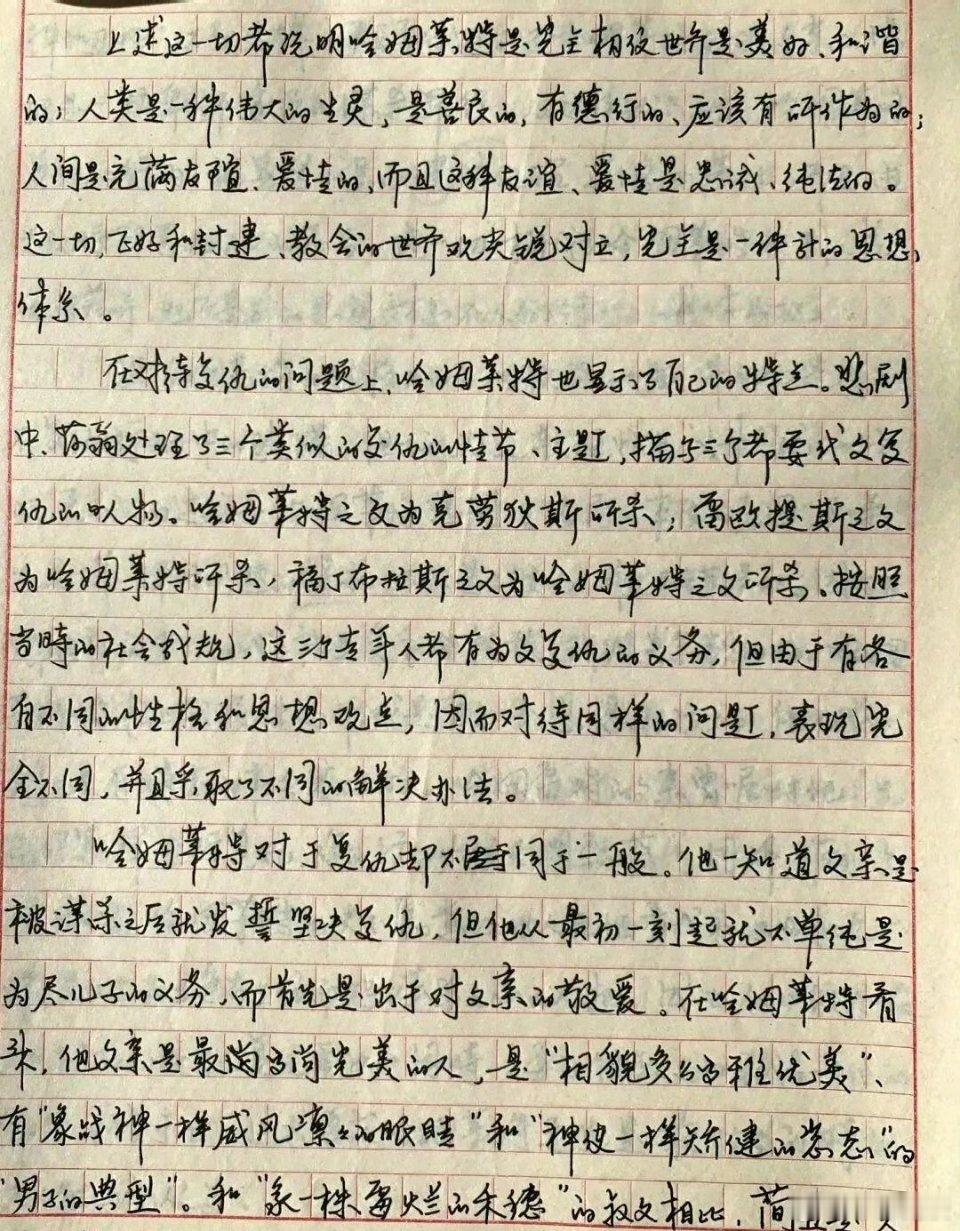 上述这一切都说明哈姆莱特是完全相信世界是美好、和谐
的；人类是一种伟大的生灵，是善良的，有德行的、应该有所作为的；
人间是充满友谊、爱情的，而且这种友谊、爱情是忠诚、纯洁的。
这一切，正好和封建、教会的世界观尖锐对立，完全是一种新的思想
体系。
在对待复仇的问题上，哈姆莱特也显示了自己的特点。悲剧
中，莎翁处理了三个类似的复仇的情节、主题，描写三个都要代父复
仇的人物。哈姆莱特之父为克劳狄斯所杀；雷欧提斯之父
为哈姆莱特所杀，福丁布拉斯之父为哈姆莱特之父所杀。按照
当時的社会我规，这三个青年人都有为父复仇的义务，但由于有各
自不同的性格和思想观点，因而对待同样的问题，表现完
全不同，并且采取了不同的解决办法。
哈姆莱特对于复仇却不同于一般。他一知道父亲是
被谋杀之后就发誓坚决复仇，但他从最初一刻起就不单纯是
为尽儿子的义务，而首先是出于对父亲的敬爱。在哈姆莱特看
来，他父亲是最高尚完美的人，是“相貌多么高雅优美”、
有“象战神一样威风凛凛的眼睛”和“神使一样矫健的姿态”的
“男子的典型”。和“象一株霉烂的禾穗”的叔父相比，简